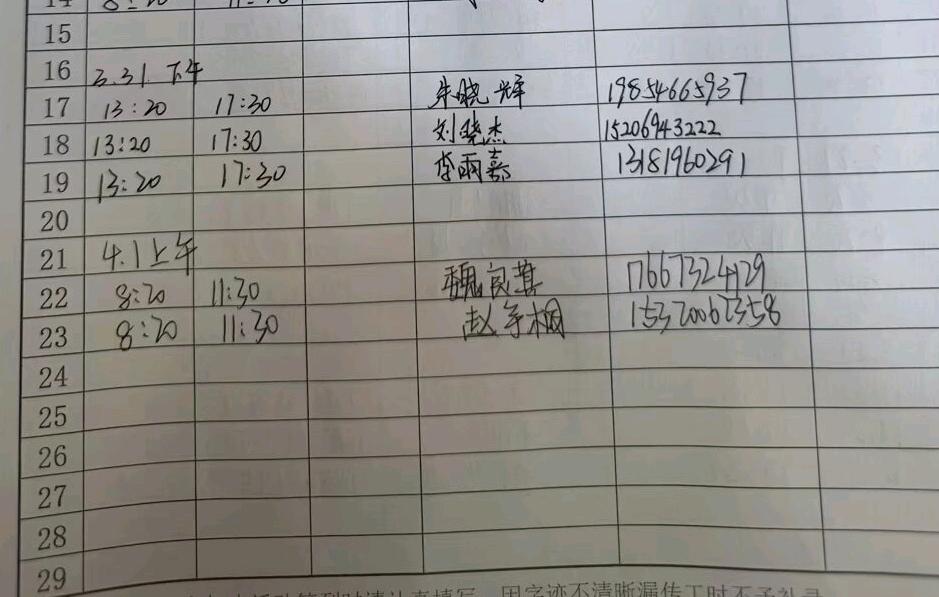 14 8:20
15
16 3.31 下午
17 13:20 17:30 朱晓辉 19854665937
18 13:20 17:30 刘晓杰 15206943222
19 13:20 17:30 李雨嘉 13181960291
20
21 4.1上午
22 8:20 11:30 魏良 17667324129
23 8:20 11:30 赵 桐 15320062358
24
25
26
27
28
29
时请认真填写，因字迹不清晰漏传工时不予补录